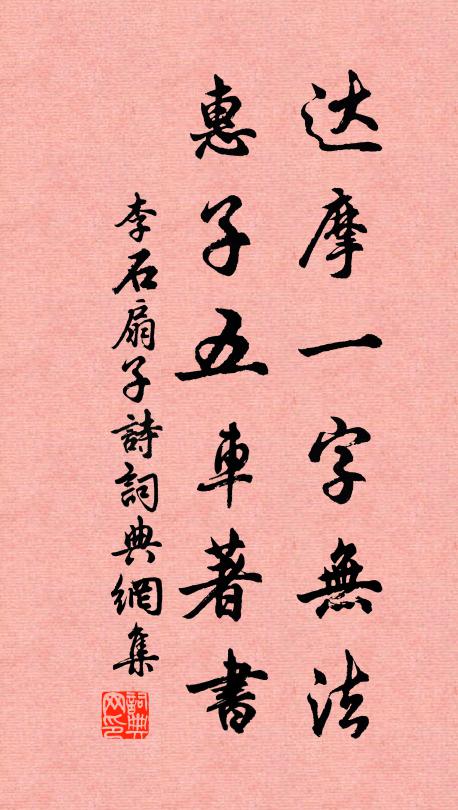 达摩一字無法
惠子五車著書
李石扇子詩詞典網集
詞典网印